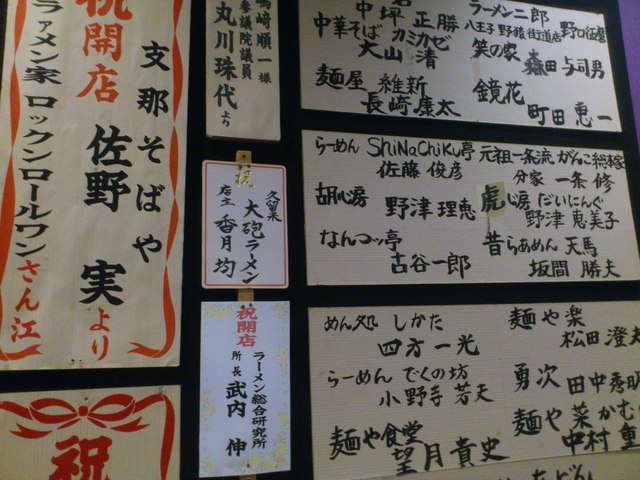 祝開店
支那そばや
佐野 実より
ラァメン家 ロックンロールワンさん江
嶋崎順一様
参議院議員
丸川珠代より
祝
久留米
大砲ラーメン
店主 香月 均
祝開店
ラーメン総合研究所
所長 武内 伸
祝
坪 正勝
ラーメン二郎
八王子 野猿街道店
中華そば カミカゼ
大山 清
笑の家
森田 与司男
麺屋 維新
長崎 康太
鏡花
町田 恵一
らーめん ShiNaChiKu亭
佐藤 俊彦
元祖一条流 がんこ 総本家
分家 一条 修
胡心房
野津 理恵
虎心房 だいにんぐ
野津 恵美子
なんつッ亭
古谷 一郎
昔らあめん 天馬
坂間 勝夫
めん処 しかた
四方 一光
麺や 楽
松田 澄
らーめん でくの坊
小野寺 若天
勇次
田中 秀
麺や食堂
望月 貴史
麺や 菜かむ
中村 重